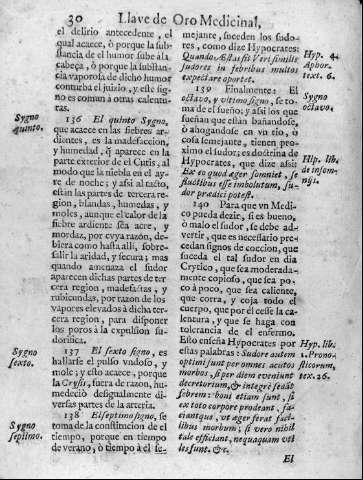 30 Llave de Oro Medicinal.
el delirio antecedente, el
qual acaece, ò porque la subs-
tancia de el humor sube à la
cabeça, ò porque la substan-
cia vaporosa de dicho humor
conturba el juizio, y este sig-
no es comun à otras calentu-
ras.
Sygno
quinto.
136 El quinto Sygno,
que acaece en las fiebres ar-
dientes, es la madefaccion,
y humedad, q̃ aparece en la
parte exterior de el Cutis, al
modo que la niebla en el ay-
re de noche; y assi al tacto,
estàn las partes de tercera re-
gion, blandas, humedas, y
moles, aunque el calor de la
fiebre ardiente sea acre, y
mordaz, por cuya razon, de-
biera como hasta alli, sobre-
salir la aridàd, y secura; mas
quando amenaza el sudor
aparecen dichas partes de ter-
cera region, madefactas, y
rubicundas, por razon de los
vapores elevados à dicha ter-
cera region, para disponer
los poros à la expulsion su-
dorifica.
Sygno
sexto.
137 El sexto signo, es
hallarse el pulso vndoso, y
mole; y esto acaece, porque
la Crysis, fuera de razon, hu-
medeciò desigualmente di-
versas partes de la arteria.
Sygno
septimo.
138 El septimo signo, se
toma de la constimcion de el
tiempo, porque en tiempo
de verano, ò tiempo à el se-
mejante, suceden los sudo-
res, como dize Hypocrates:
Quando Æstas fit Veri similis
sudores in febribus multos
expectare oportet.
Hyp. 4.
Aphor.
text. 6.
139 Finalmente: El
octavo, y vltimo signo, se to-
ma de el sueño; y assi los que
sueñan que estàn bañandose,
ò ahogandose en vn rio, ò
cosa semejante, tienen pro-
ximo el sudor; es doctrina de
Hypocrates, que dize assi:
Ex eo quod æger somniet, se
fluctibus esse imbolutum, su-
dor prædici potest.
Sygno
octavo.
Hip. lib.
de insom-
nijs.
140 Para que vn Medi-
co pueda dezir, si es bueno,
ò malo el sudor, se debe ad-
vertir, que es necessario pre-
cedan signos de coccion, que
suceda el tal sudor en dia
Crytico, que sea moderada-
mente copioso, que sea po-
co à poco, que sea caliente,
que corra, y coja todo el
cuerpo, que por èl cesse la ca-
lentura, y que se haga con
tolerancia de el enfermo.
Esto enseña Hypocrates por
estas palabras: Sudore autem
optimi sunt per omnes acutos
morbos, si per diem eveniunt
decretorium, & integrè sedãt
febrem: boni etiam sunt, si
ex toto corpore prodeant, fa-
ciantque, vt æger ferat faci-
lius morbum; si vero nihil
tale efficiant, nequaquam vti
les sunt. &c.
Hyp. lib.
1. Prono-
sticorum,
tex. 26.
El